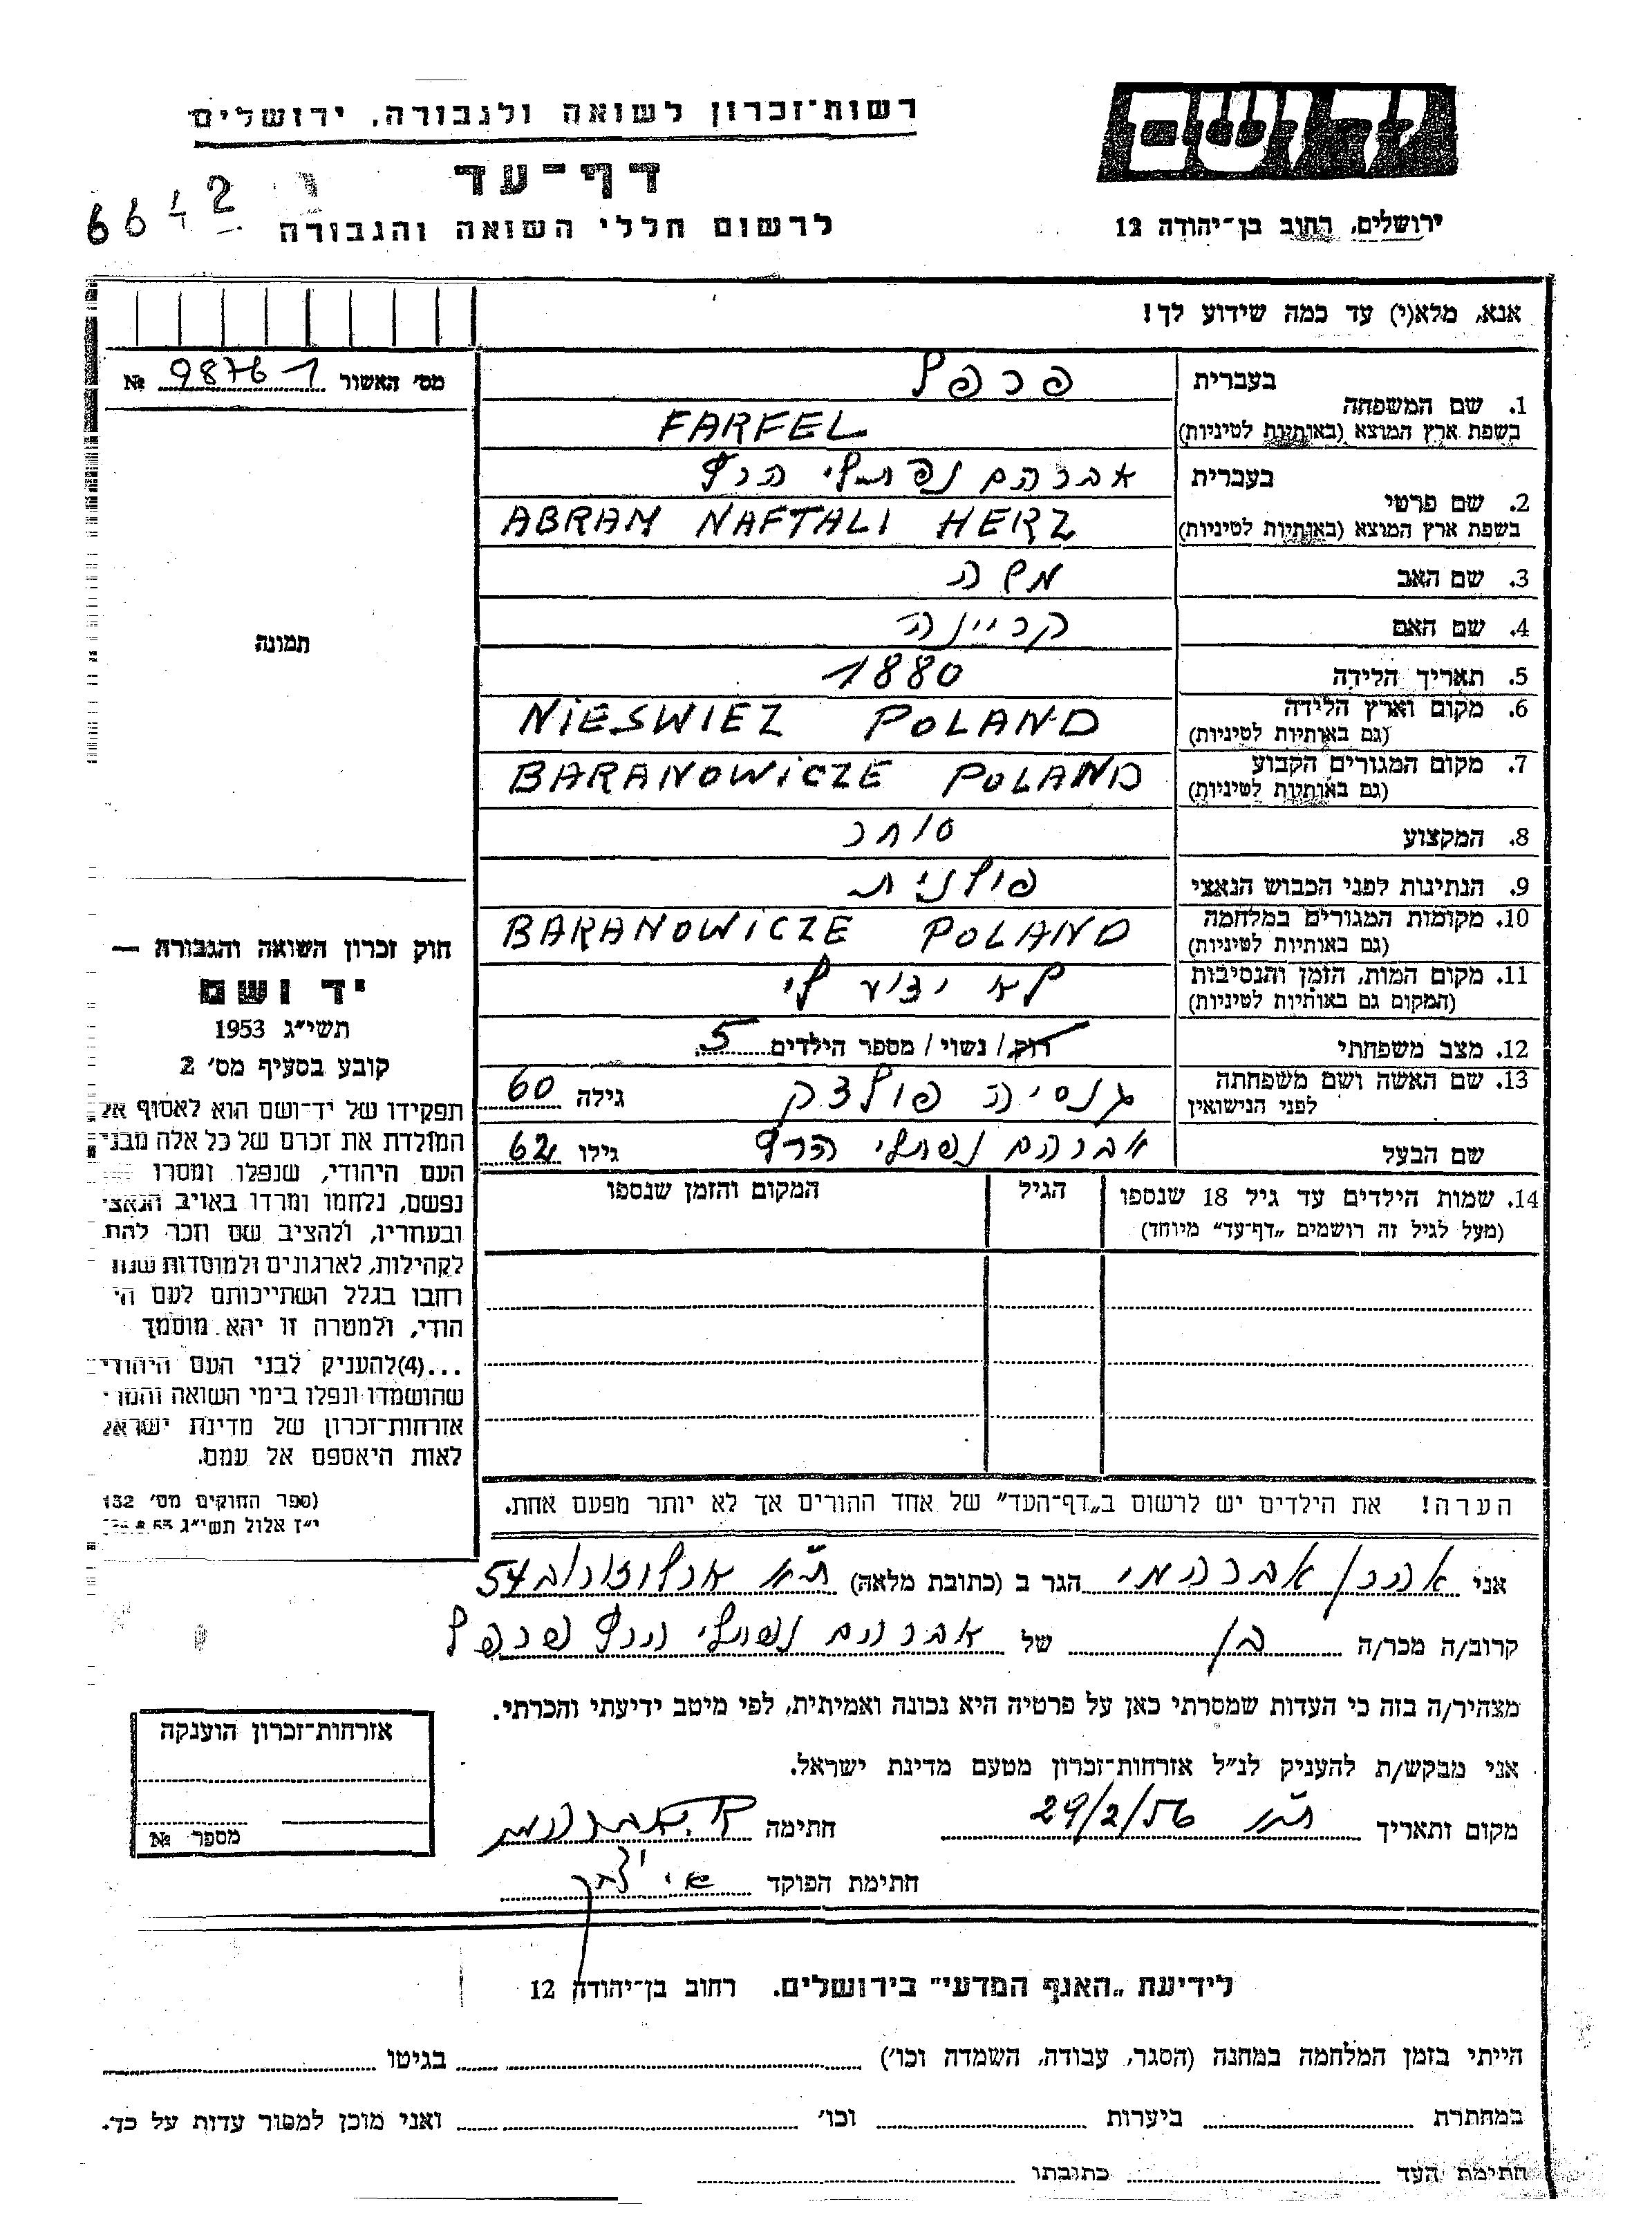 רשות־זכרון לשואה ולגבורה, ירושלים
יד ושם
דף־עד
6642
לרשום חללי השואה והגבורה
ירושלים, רחוב בן־יהודה 12
אנא, מלא(י) עד כמה שידוע לך!
מס׳ האשור 98761 №
בעברית פרפל
1. שם המשפחה
בשפת ארץ המוצא (באותיות לטיניות) FARFEL
בעברית אברהם נפתלי הרץ
2. שם פרטי
בשפת ארץ המוצא (באותיות לטיניות) ABRAM NAFTALI HERZ
3. שם האב משה
4. שם האם קריינה
5. תאריך הלידה 1880
6. מקום וארץ הלידה NIESWIEZ POLAND
(גם באותיות לטיניות)
7. מקום המגורים הקבוע BARANOWICZE POLAND
(גם באותיות לטיניות)
8. המקצוע סוחר
9. הנתינות לפני הכבוש הנאצי פולנית
10. מקומות המגורים במלחמה BARANOWICZE POLAND
(גם באותיות לטיניות)
11. מקום המות, הזמן והנסיבות לא ידוע לי
(המקום גם באותיות לטיניות)
12. מצב משפחתי רוק/ נשוי / מספר הילדים 5
13. שם האשה ושם משפחתה גנסיה פולצק גילה 60
לפני הנישואין
שם הבעל אברהם נפתלי הרץ גילו 62
14. שמות הילדים עד גיל 18 שנספו הגיל המקום והזמן שנספו
(מעל לגיל זה רושמים „דף־עד״ מיוחד)
הערה! את הילדים יש לרשום ב„דף־העד״ של אחד ההורים אך לא יותר מפעם אחת.
תמונה
חוק זכרון השואה והגבורה —
יד ושם
תשי״ג 1953
קובע בסעיף מס׳ 2
תפקידו של יד־ושם הוא לאסוף אל
המולדת את זכרם של כל אלה מבני
העם היהודי, שנפלו ומסרו
נפשם, נלחמו ומרדו באויב הנאצי
ובעוזריו, ולהציב שם וזכר להם
לקהילות, לארגונים ולמוסדות שנח
רחבו בגלל השתייכותם לעם הי
הודי, ולמטרה זו יהא מוסמך
...(4)להעניק לבני העם היהודי
שהושמדו ונפלו בימי השואה והמרי
אזרחות־זכרון של מדינת ישראל
לאות היאספם אל עמם.
(ספר החוקים מס׳ 132
י״ז אלול תשי״ג
אני אהרן אברהמי הגר ב (כתובת מלאה) ת״א ארלוזורוב 54
קרוב/ה מכר/ה בן של אברהם נפתלי הרץ פרפל
מצהיר/ה בזה כי העדות שמסרתי כאן על פרטיה היא נכונה ואמיתית, לפי מיטב ידיעתי והכרתי.
אני מבקש/ת להעניק לנ״ל אזרחות־זכרון מטעם מדינת ישראל.
מקום ותאריך ת״א 29/2/56 חתימה
חתימת הפוקד
אזרחות־זכרון הוענקה
מספר №
לידיעת „האגף המדעי״ בירושלים. רחוב בן־יהודה 12
הייתי בזמן המלחמה במחנה (הסגר, עבודה, השמדה וכו׳) בגיטו
במחתרת ביערות וכו׳ ואני מוכן למסור עדות על כך.
חתימת העד כתובתו